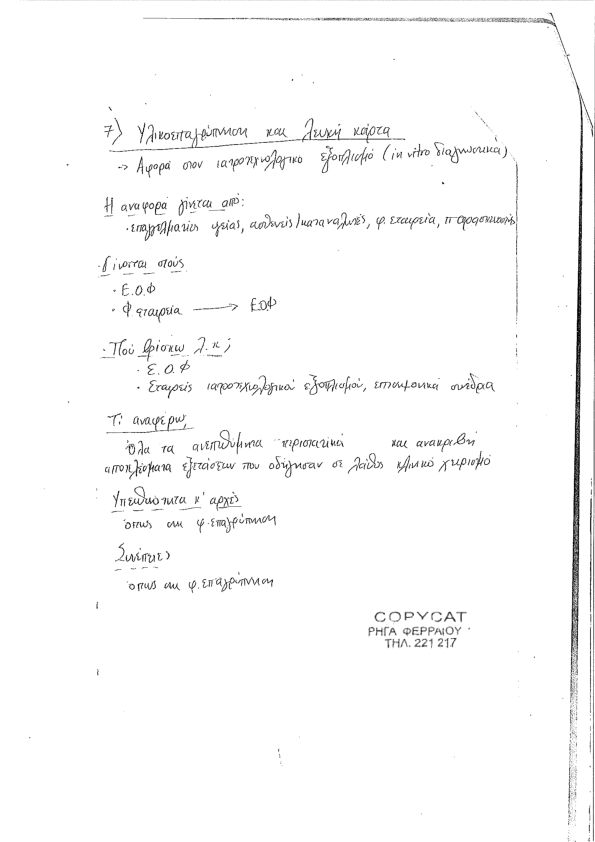 7) Υλικοεπαγρύπνηση και λευκή κάρτα
-> Αφορά στον ιατροτεχνολογικό εξοπλισμό (in vitro διαγνωστικά)
Η αναφορά γίνεται από:
· επαγγελματίες υγείας, ασθενείς/καταναλωτές, φ. εταιρεία, παρασκευαστής
· Δίνονται στους
· Ε.Ο.Φ
· Φ. εταιρεία → ΕΟΦ
· Πού βρίσκω λ.κ;
· Ε.Ο.Φ
· Εταιρείς ιατροτεχνολογικού εξοπλισμού, επιστημονικά συνέδρια
Τι αναφέρω;
Όλα τα ανεπιθύμητα περιστατικά και ανακριβή
αποτελέσματα εξετάσεων που οδήγησαν σε λάθος κλινικό χειρισμό
Υπευθυνότητα κ' αρχές
όπως στη φ. επαγρύπνηση
Συνέπειες
όπως στη φ. επαγρύπνηση
COPYCAT
ΡΗΓΑ ΦΕΡΡΑΙΟΥ
ΤΗΛ. 221 217